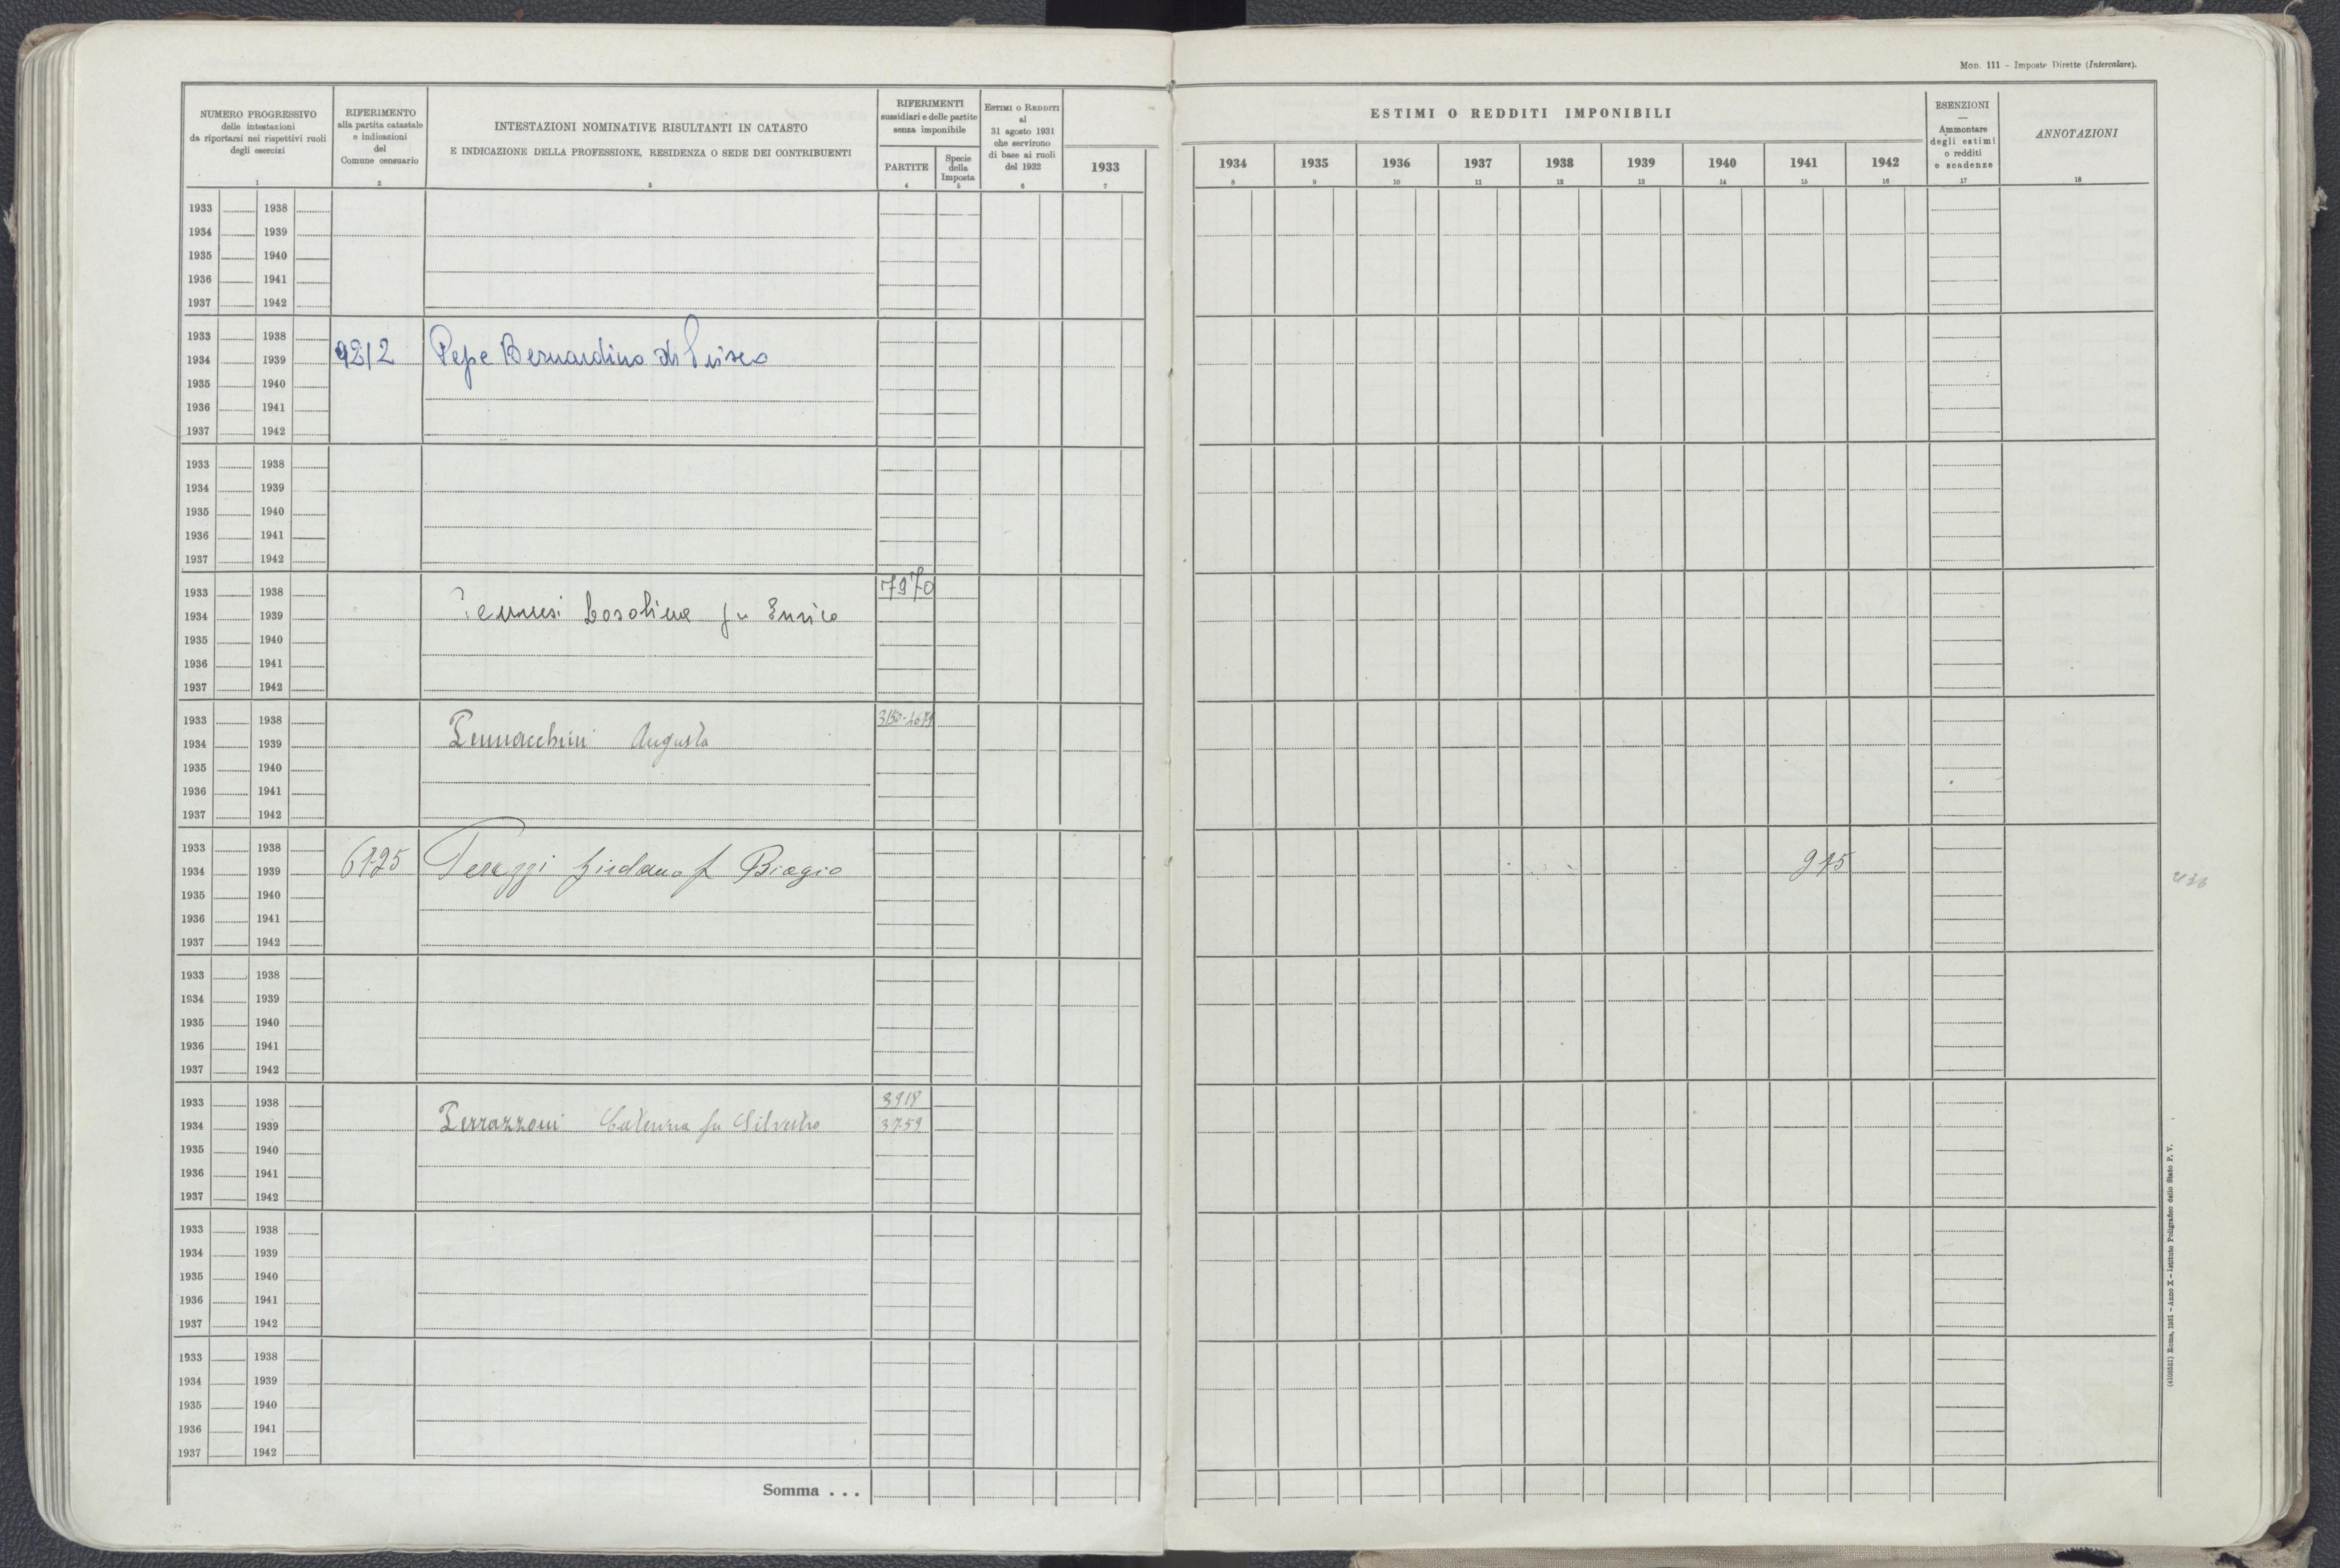 Mod. 111 - Imposte Dirette (Intercalare).
NUMERO PROGRESSIVO
delle intestazioni
da riportarsi nei rispettivi ruoli
degli esercizi
1
RIFERIMENTO
alla partita catastale
e indicazioni
del
Comune censuario
2
INTESTAZIONI NOMINATIVE RISULTANTI IN CATASTO
E INDICAZIONE DELLA PROFESSIONE, RESIDENZA O SEDE DEI CONTRIBUENTI
3
RIFERIMENTI
sussidiari e delle partite
senza imponibile
PARTITE
4
Specie
della
Imposta
5
Estimi o Redditi
al
31 agosto 1931
che servirono
di base ai ruoli
del 1932
6
1933
7
ESTIMI O REDDITI IMPONIBILI
1934 1935 1936 1937 1938 1939 1940 1941 1942
8 9 10 11 12 13 14 15 16
ESENZIONI
—
Ammontare
degli estimi
o redditi
e scadenze
17
ANNOTAZIONI
18
1933 1938
1934 1939
1935 1940
1936 1941
1937 1942
1933 1938
1934 1939 9212 Pepe Bernardino di
1935 1940
1936 1941
1937 1942
1933 1938
1934 1939
1935 1940
1936 1941
1937 1942
1933 1938 7970
1934 1939 fu Enrico
1935 1940
1936 1941
1937 1942
1933 1938
1934 1939 Pennacchini Augusto
1935 1940
1936 1941
1937 1942
1933 1938
1934 1939 6125 Biagio 915
1935 1940
1936 1941
1937 1942
1933 1938
1934 1939
1935 1940
1936 1941
1937 1942
1933 1938 3918
1934 1939 Perrazzoni Caterina fu Silvestro 3759
1935 1940
1936 1941
1937 1942
1933 1938
1934 1939
1935 1940
1936 1941
1937 1942
1933 1938
1934 1939
1935 1940
1936 1941
1937 1942
Somma . . .
(4103531) Roma, 1931 - Anno X - Istituto Poligrafico dello Stato P. V.